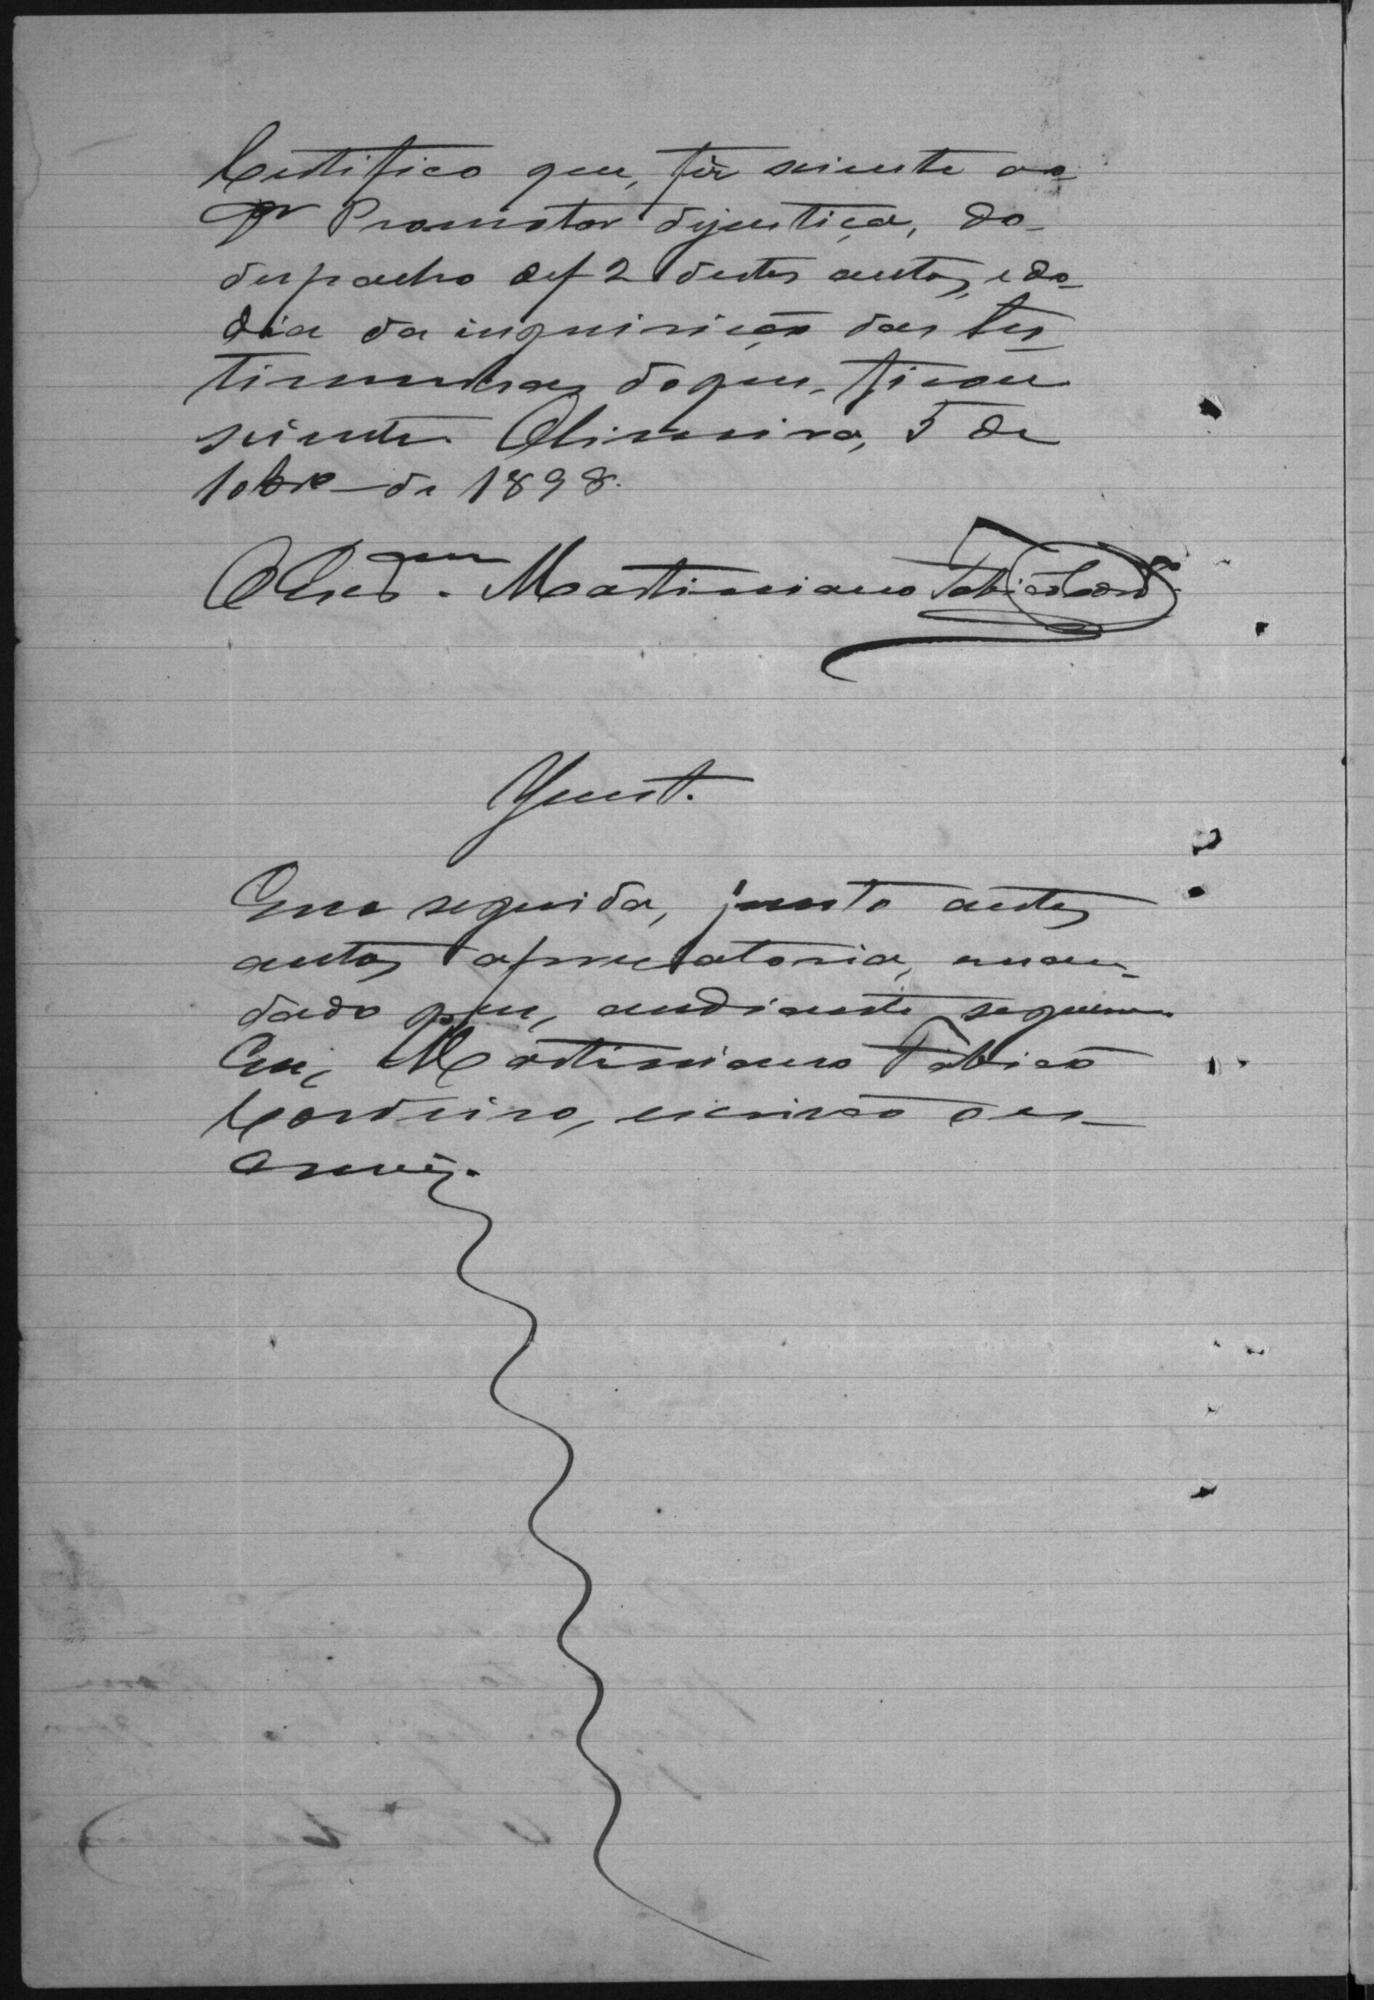 Certifico que, fis sciente ao
Dr Promotor dejustiça, do
despacho def 2 destes autos, e do
dia da inquirição das tes
timunhas doque, ficou
sciente. Oliveira, 5 de
10bro de 1898.
Martiniano Fabião Cordº
Junt.
Em seguida, junto aestes
autos aprecatoria, man-
dado que, audiante seguem.
Eu, Martiniano Fabião
Cordeiro, escrivão oes-
crevi.